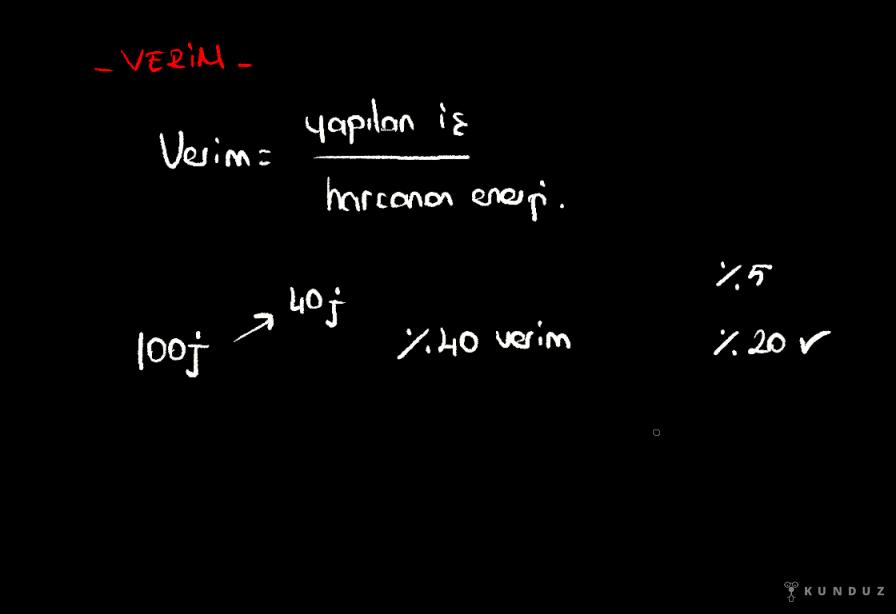 - VERİM -
Verim = yapılan iş
harcanan enerji.
%5
100j → 40j %40 verim %20 ✓
KUNDUZ